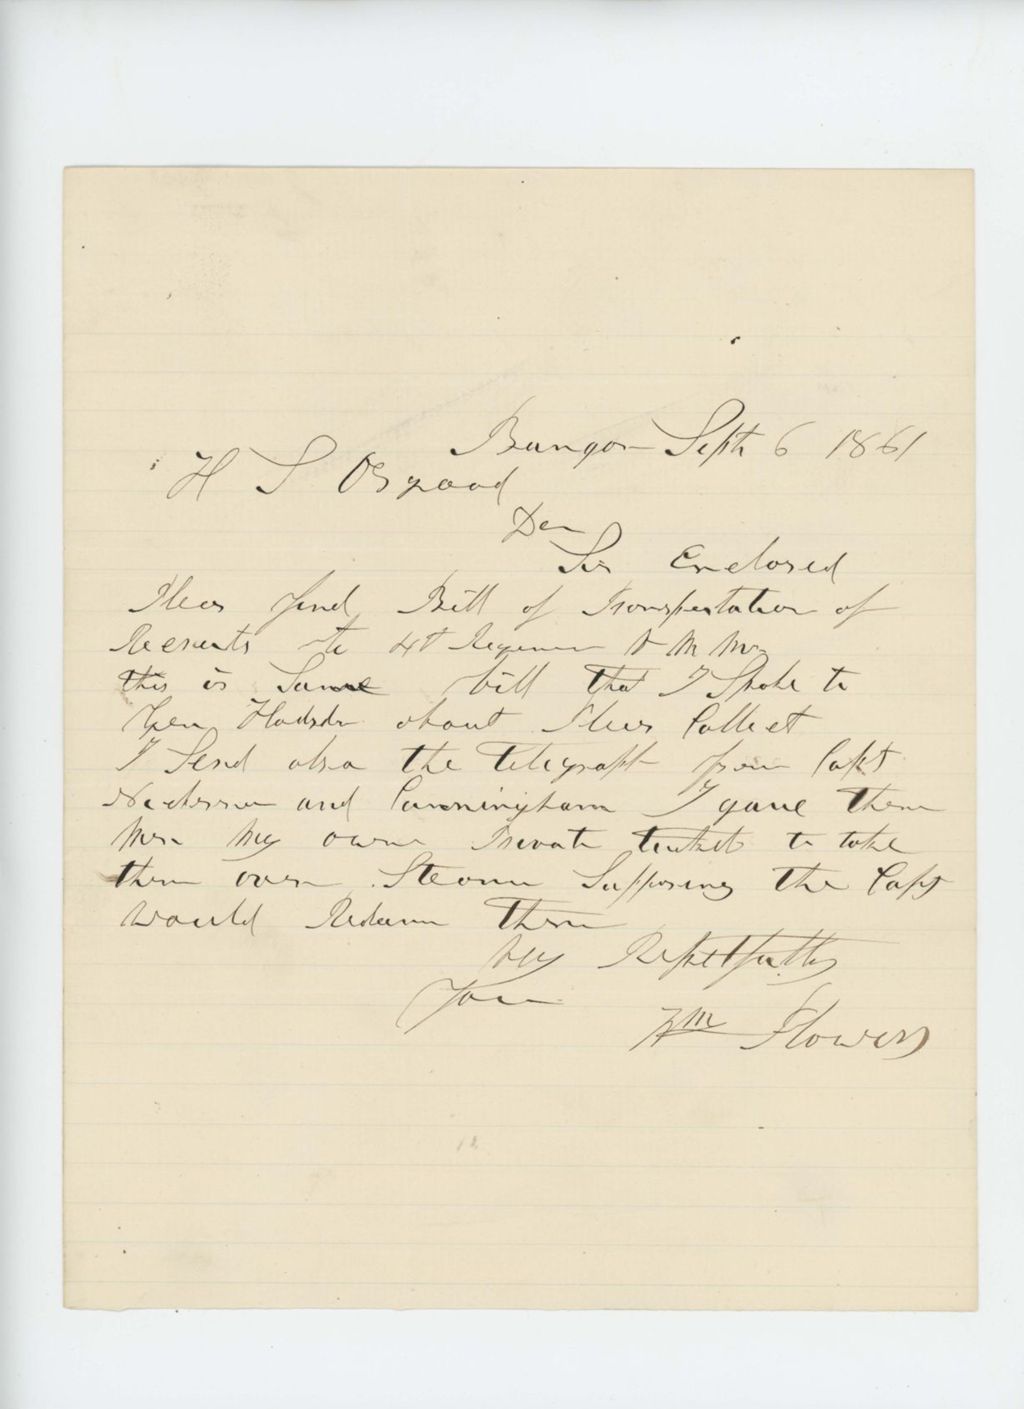 Bangor Sept 6 1861
H S Osgood
Dear
Sir Enclosed
Pleas find Bill of Transportation of
Recruits to 4t Regiment
this is Same bill that I Spoke to
Gen Hodsdon about Pleas Collect
I Send also the Telegraph from Capt
Nickerson and Cunningham I gave them
men my own Private ticket to take
them over Steamer Supposing the Capt
would Redeem them
Very Respectfully
Your
Wm Flowers
12